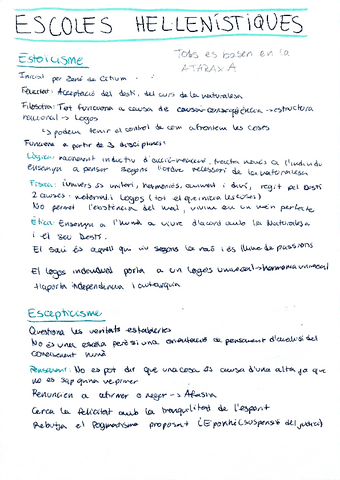 ESCOLES HELLENÍSTIQUES
Tots es basen en la
ATARAXIA
Estoïcisme
Iniciat per Zenó de Citium
Felicitat: Acceptació del destí, del curs de la naturalesa
Filosofia: Tot funciona a causa de causa-conseqüència → estructura
racional → Logos
↳ podem tenir el control de com afrontem les coses
Funciona a partir de 3 disciplines:
Lògica: raonament inductiu d'acció-reacció, tracta només a l'individu
ensenya a pensar segons l'ordre necessari de la naturalesa
Física: Univers és unitari, harmoniós, animat i diví, regit pel Destí
2 causes: material i Logos (tot el que mira les coses)
No permet l'existència del mal, vivim en un món perfecte
Ètica: Ensenya a l'humà a viure d'acord amb la Naturalesa
i el seu Destí.
El savi és aquell que viu segons la raó i és lliure de passions
El logos individual porta a un Logos universal → harmonia universal
+ aporta independència i autarquia
Escepticisme
Qüestiona les veritats establertes
No és una escola però sí una orientació de pensament d'anàlisi del
coneixement humà
Pensament: No es pot dir que una cosa és causa d'una altra ja que
no es sap quina va primer
Renuncien a afirmar o negar → Afàsia
Cerca la felicitat amb la tranquilitat de l'esperit
Rebutja el Dogmatisme proposant (Epokhé (suspensió del judici)